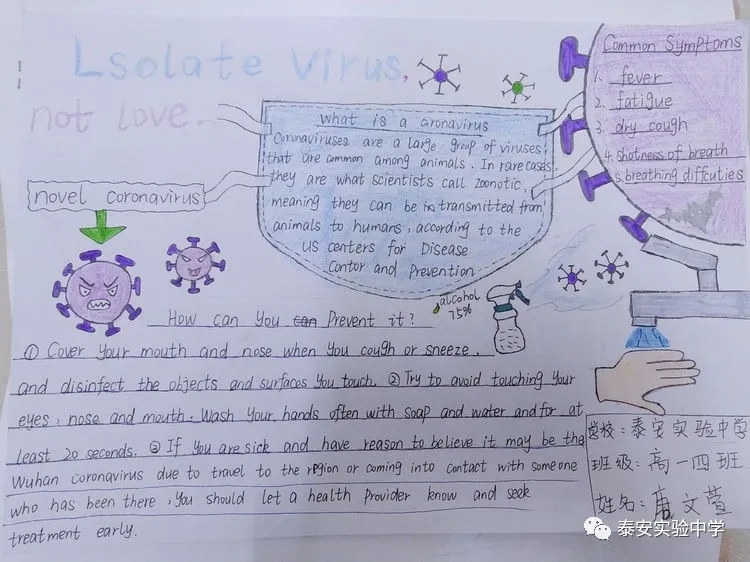 Lsolate Virus,
not love.
What is a coronavirus
Coronaviruses are a large group of viruses
that are common among animals. In rare cases,
they are what scientists call zoonotic,
meaning they can be transmitted from
animals to humans, according to the
US centers for Disease
Contor and Prevention
Common Symptoms
1. fever
2. fatigue
3. dry cough
4. shotness of breath
5. breathing diffcuties
novel coronavirus
alcohol
75%
How can You can Prevent it?
① Cover Your mouth and nose when You cough or sneeze,
and disinfect the objects and surfaces You touch. ② Try to avoid touching Your
eyes, nose and mouth. Wash Your hands often with soap and water and for at
least 20 seconds. ③ If You are sick and have reason to believe it may be the
Wuhan coronavirus due to travel to the region or coming into contact with someone
who has been there, You should let a health Provider know and seek
treatment early.
学校:泰安实验中学
班级:高一四班
姓名:唐文萱
泰安实验中学